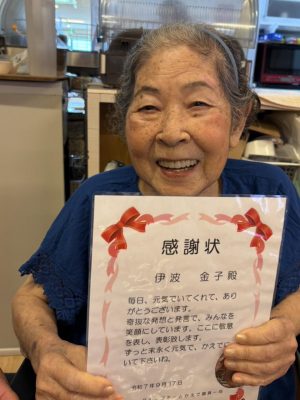 感謝状
伊波 金子殿
毎日、元気でいてくれて、あり
がとうございます。
奇抜な発想と発言で、みんなを
笑顔にしています。ここに敬意
を表し、表彰致します。
ずっと末永く元気で、かえでに
いて下さいね。
令和7年9月17日